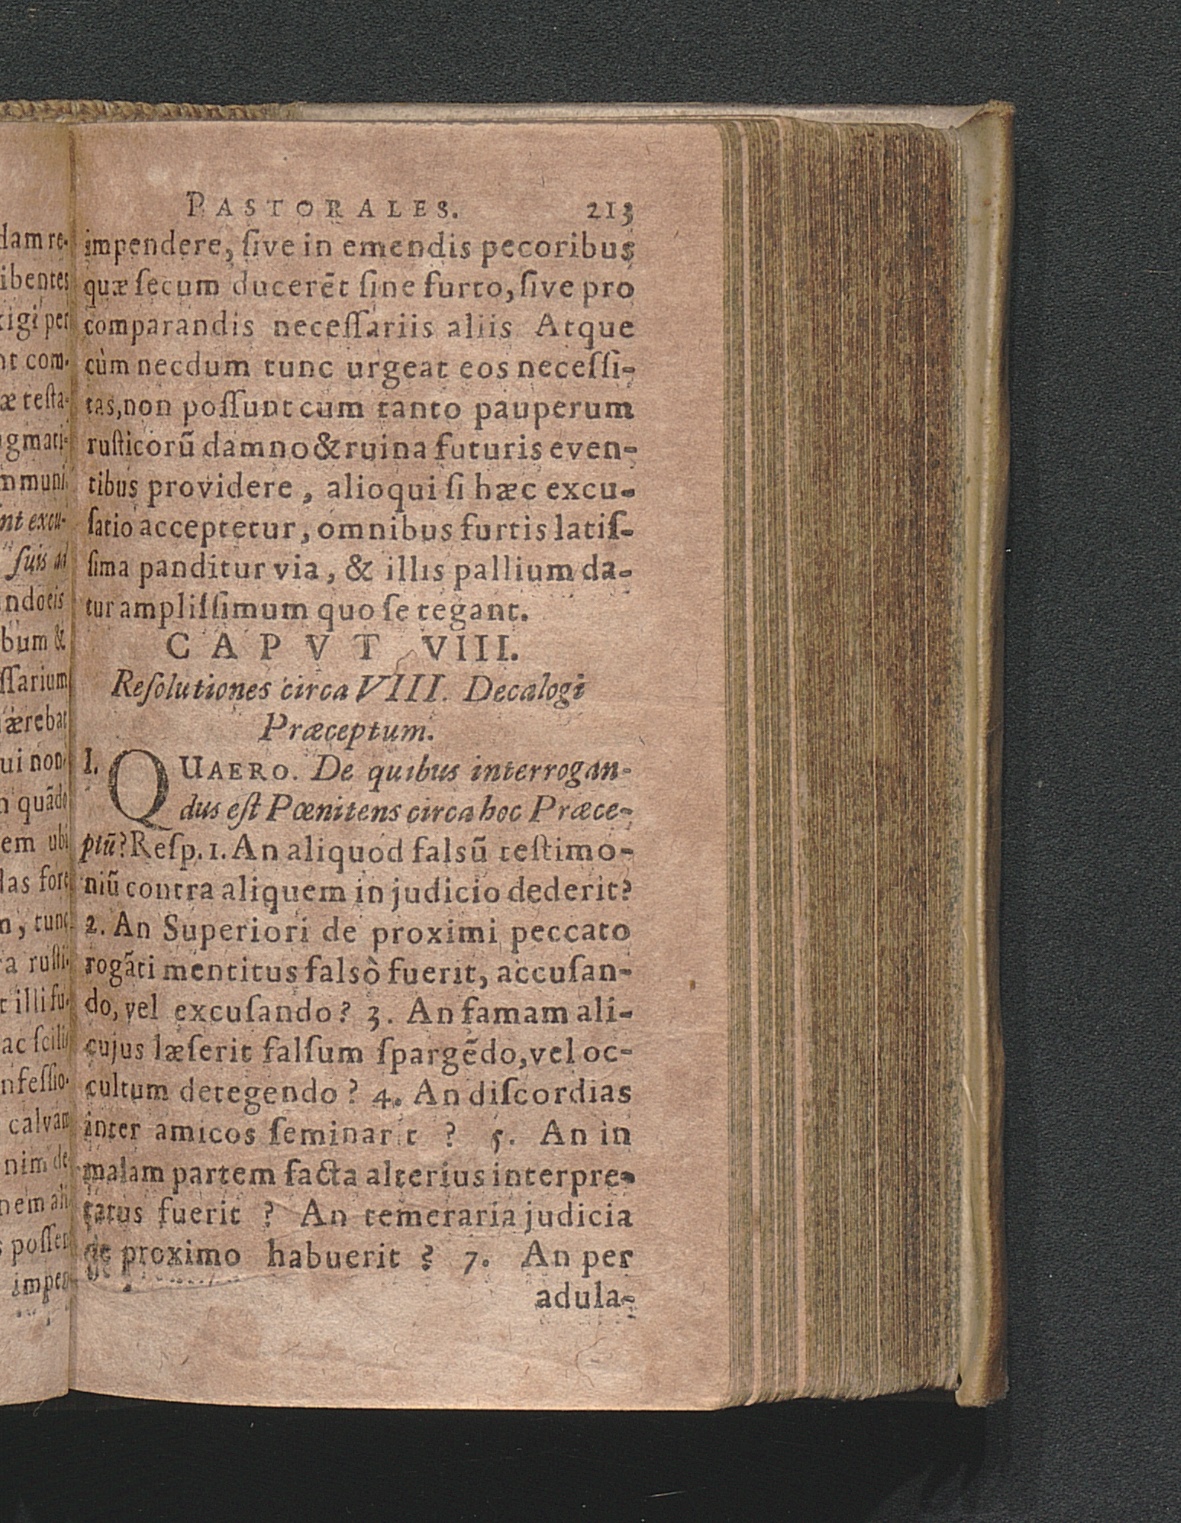 PASTORALES. 213
impendere, ſive in emendis pecoribus
quæ ſecum ducerēt ſine furto, ſive pro
comparandis neceſſariis aliis Atque
cùm necdum tunc urgeat eos neceſſi-
tas, non poſſunt cum tanto pauperum
ruſticorū damno & ruina futuris even-
tibus providere, alioqui ſi hæc excu-
ſatio acceptetur, omnibus furtis latiſ-
ſima panditur via, & illis pallium da-
tur ampliſſimum quo ſe tegant.
CAPVT VIII.
Reſolutiones circa VIII. Decalogi
Præceptum.
I. QUAERO. De quibus interrogan-
dus eſt Pœnitens circa hoc Præce-
ptū? Reſp. 1. An aliquod falsū teſtimo-
niū contra aliquem in judicio dederit?
2. An Superiori de proximi peccato
rogāti mentitus falsò fuerit, accuſan-
do, vel excuſando? 3. An famam ali-
cujus læſerit falſum ſpargēdo, vel oc-
cultum detegendo? 4. An diſcordias
inter amicos ſeminar t ? 5. An in
malam partem facta alterius interpre-
tatus fuerit ? An temeraria judicia
de proximo habuerit ? 7. An per
adula-
dam re-
ibentes
xigi per
nt com-
æ teſta-
gmati-
mmuni
nt excu-
ſuis ad
ndoeis
bum &
ſſarium
ærebat
ui non
n quādo
em ubi
las fore
n, tunc
ra ruſti-
t illi fu-
ac ſcili
nfeſſio-
calvam
nim de
nem ali
s poſſet
impen-